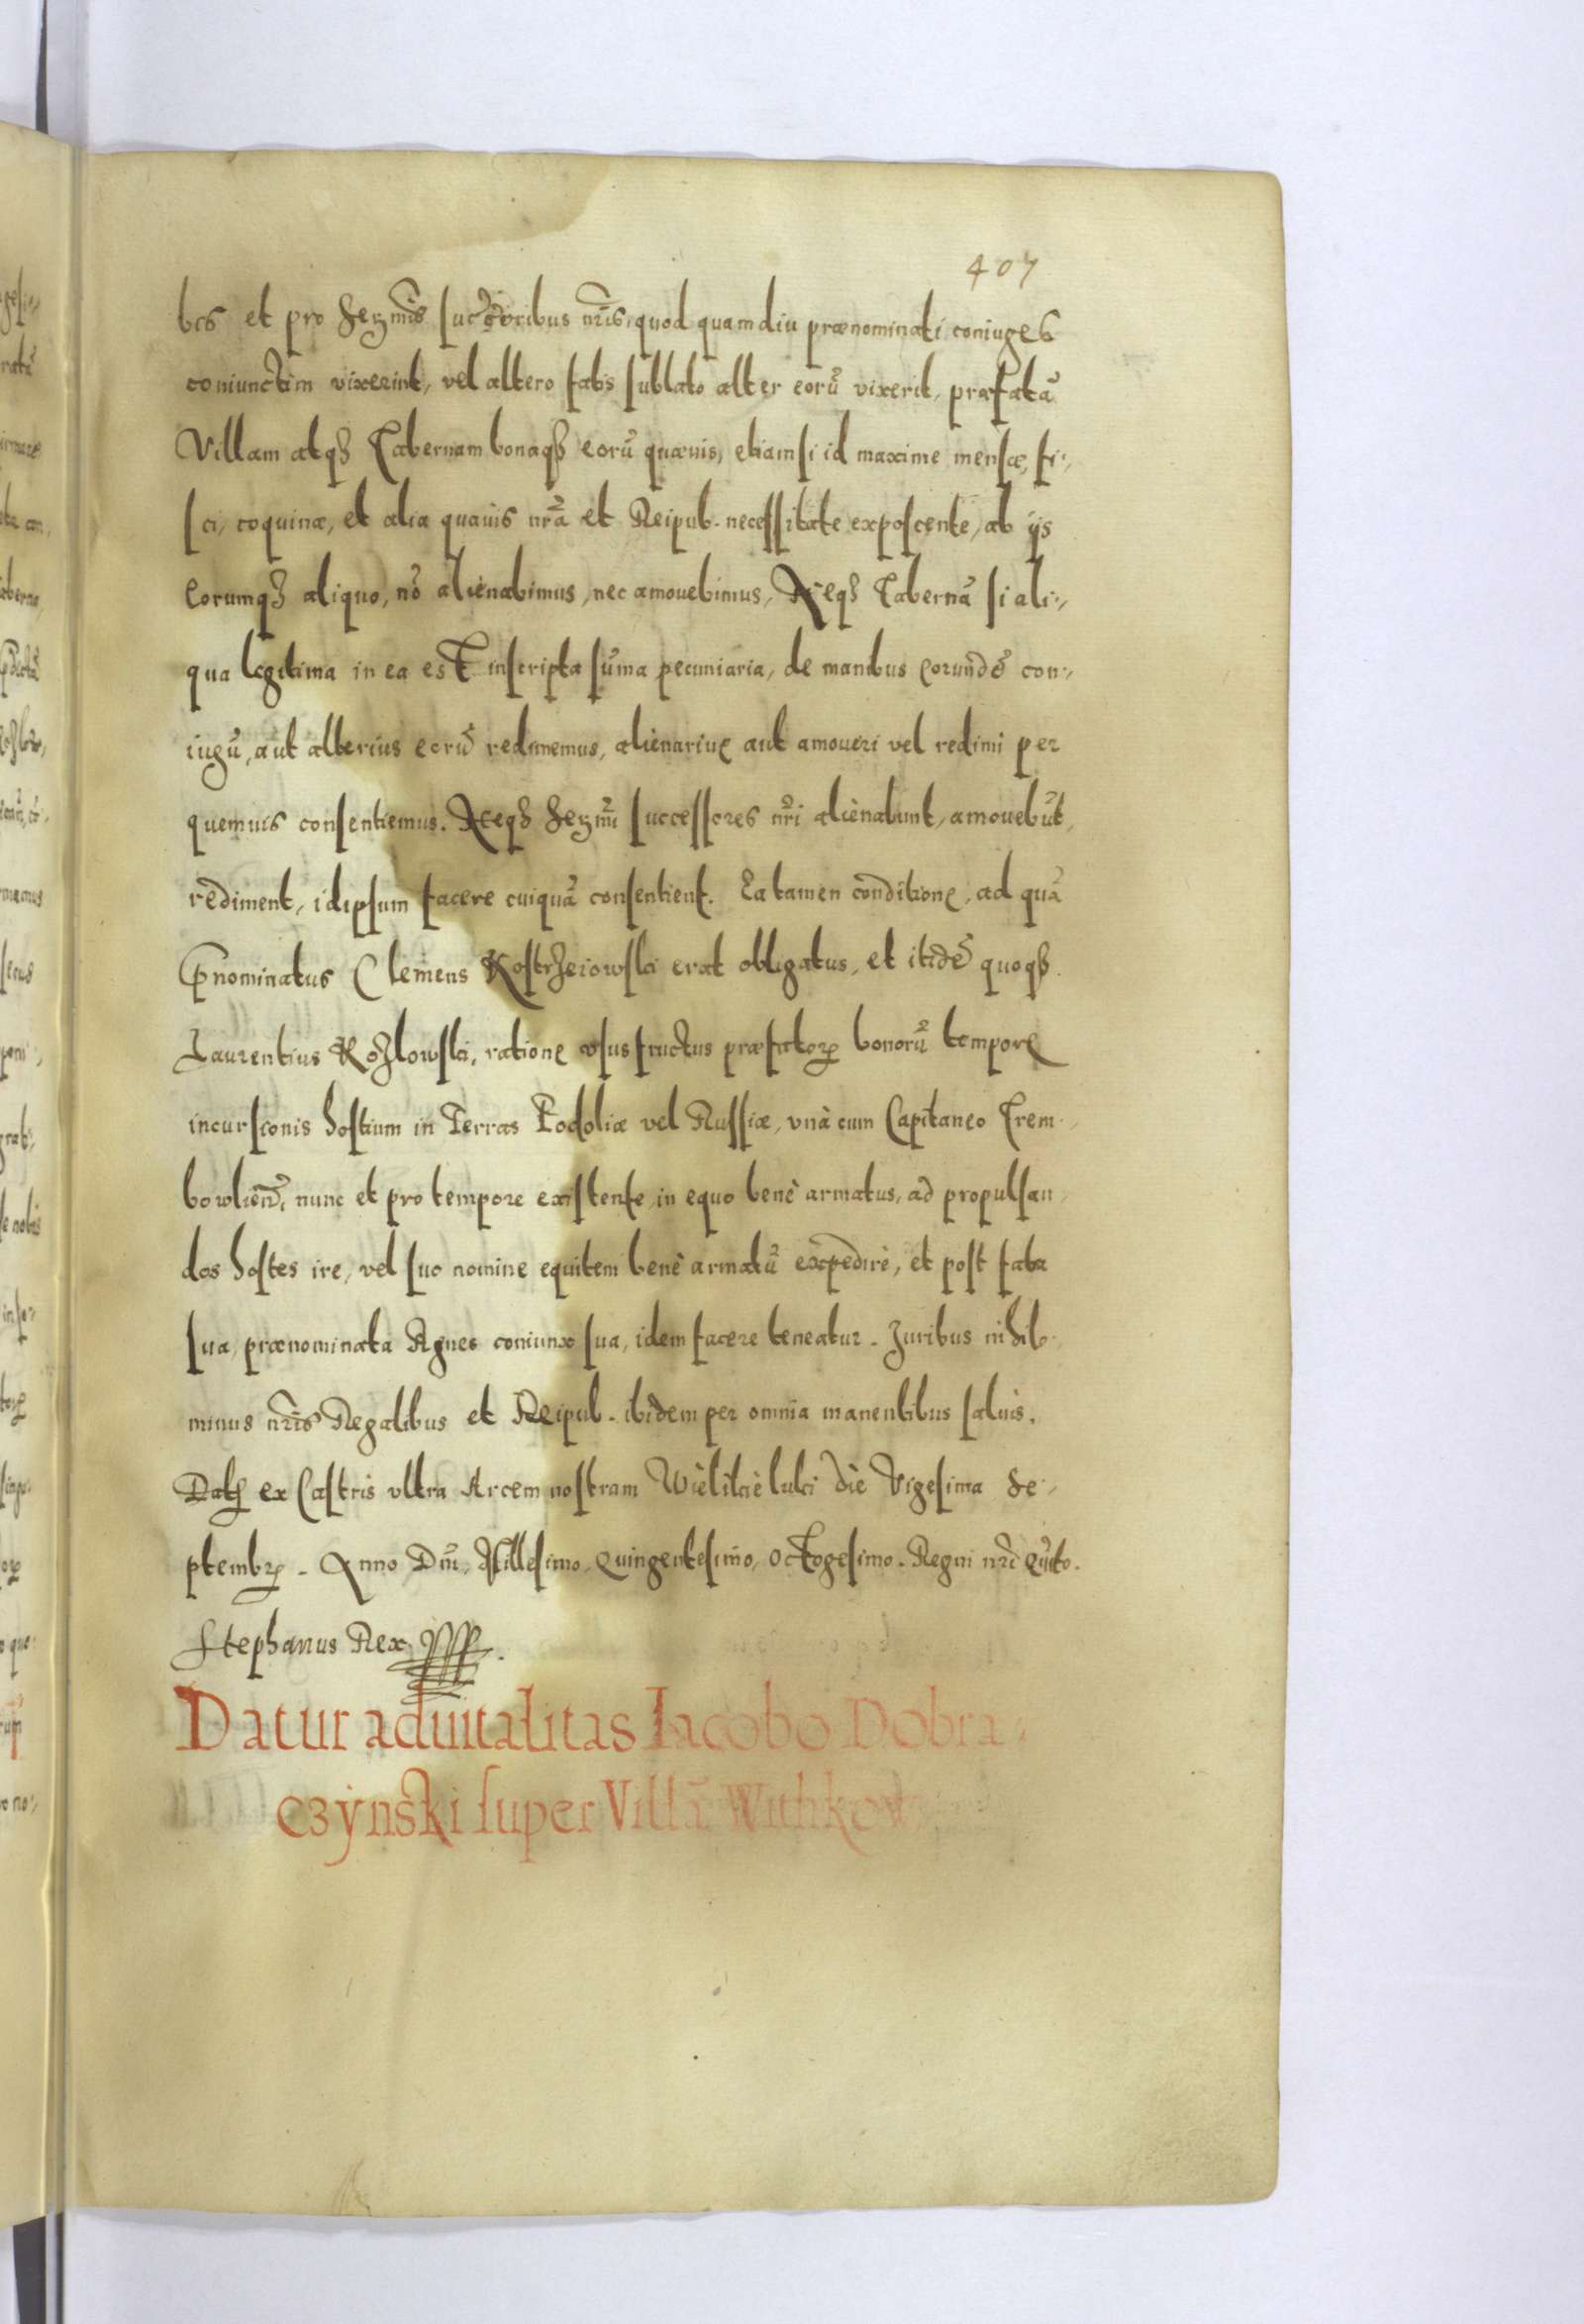 407
bis et pro Serzmis̃ succr̃oribus nr̃is, quod quamdiu prænominati coniuges
coniunctim vixerint, vel altero fatis sublato alter eorũ vixerit, præfatã
Villam atqʒ Tabernam bonaqʒ eorũ quævis, etiamsi id maxime mensæ, fi-,
sci, coquinæ, et alia quavis nr̃a et Reipub. necessitate exposcente, ab ijs
Eorumqʒ aliquo, nõ alienabimus, nec amouebimus, Neqʒ Tabernã si ali-,
qua legitima in ea est inscripta sũma pecuniaria, de manibus eorundẽ con-,
iugũ, aut alterius eorũ redimemus, alienariue aut amoueri vel redimi per
quemuis consentiemus. Neqʒ Serzmĩ successores nr̃i alienabunt, amouebũt,
rediment, idipsum facere cuiquã consentient. Ea tamen conditione, ad quã
Pnominatus Clemens Kostrzeiowski erat obligatus, et itidẽ quoqʒ
Laurentius Kozlowski, ratione vsusfructus præfatorꝝ bonorũ tempore
incursionis hostium in Terras Podoliæ vel Russiæ, vnà cum Capitaneo Trem-,
bowlieñ. nunc et pro tempore existente, in equo benè armatus, ad propulsan,
dos hostes ire, vel suo nomine equitem benè armatũ expedire, et post fata
sua, prænominata Agnes coniunx sua, idem facere teneatur. Iuribus nihilo,
minus nr̃is Regalibus et Reipub. ibidem per omnia manentibus saluis.
Datꝭ ex Castris vltra Arcem nostram Wielikie luki die Vigesima Se-,
ptembrꝭ. Anno Dnĩ, Millesimo, Quingentesimo, Octogesimo. Regni nr̃i Qũto.
Stephanus Rex.
Datur aduitalitas Iacobo Dobra,
czÿnski super Villã Withkow